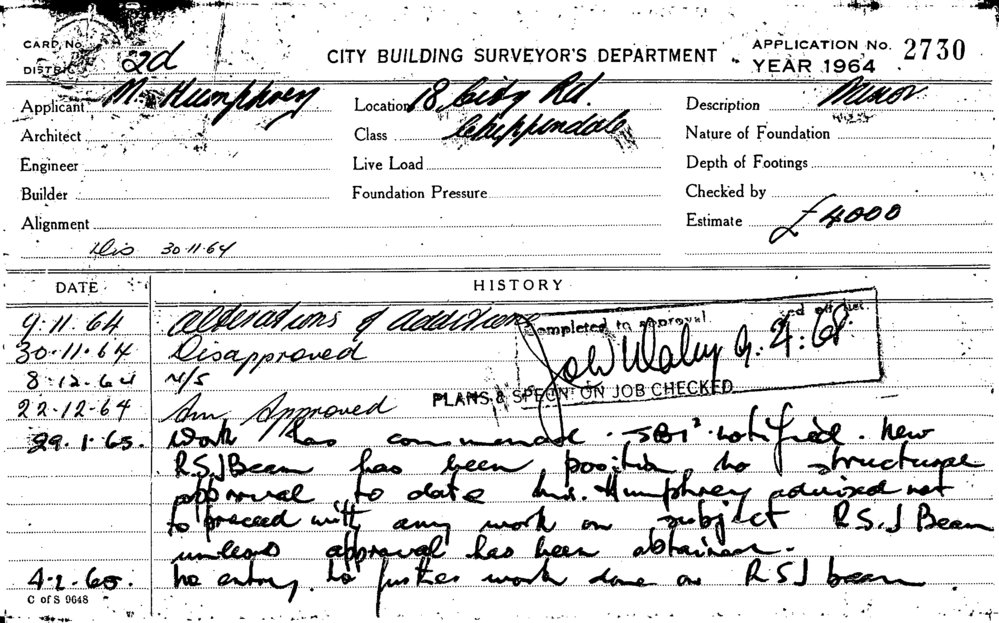 CARD. No.
CITY BUILDING SURVEYOR'S DEPARTMENT
APPLICATION No. 2730
DISTRICT 2d
YEAR 1964
Applicant M. Humphrey
Location 18 City Rd.
Description Minor
Architect
Class Chippendale
Nature of Foundation
Engineer
Live Load
Depth of Footings
Builder
Foundation Pressure
Checked by
Alignment
Estimate £4000
Dis 30.11.64
DATE
HISTORY
9.11.64 Alterations & additions
Completed to approval
9.4.68
30.11.64 Disapproved
8.12.64 N/S
PLANS & SPECN ON JOB CHECKED
22-12-64 Am. Approved
29.1.65. Work has commenced notified. New
R.S.J Beam has been position no structural
approval to date Mrs. Humphrey advised not
to proceed with any work on subject R.S.J Beam
unless approval has been obtained.
4-2-65. No entry. No further work done on RSJ beam
C of S 9648